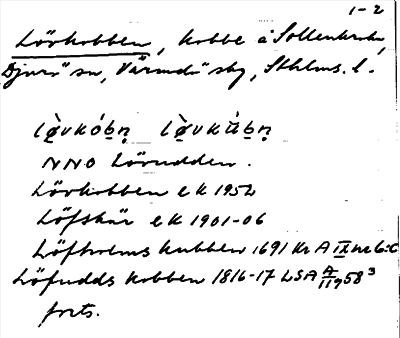 1-2
Lövkobben, kobbe å Sollenkroka,
Djurö sn, Värmdö skg, Sthlms. l.
NNO Lövudden.
Lövkobben ek 1952
Löfskär ek 1901-06
Löfholms kubben 1691 Kr A IX nr 6:c
Löfudds kobben 1816-17 LSA A
forts.